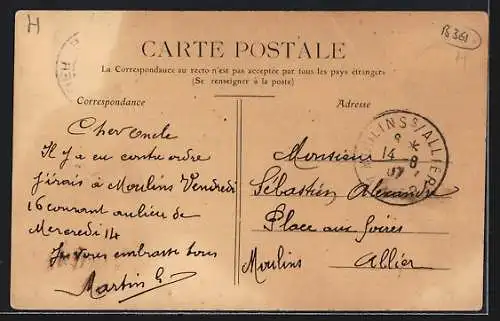 H
B361
H
CARTE POSTALE
La Correspondance au recto n'est pas acceptée par tous les pays étrangers
(Se renseigner à la poste)
Correspondance
Adresse
MOULINS S/ALLIER
8 *
14 -8
07
Cher Oncle
Il y a eu contre ordre
j'irais à Moulins Vendredi
16 courant au lieu de
Mercredi 14
Je vous embrasse tous
Martin G
Monsieur
Sébastien Alexandre
Place aux Foires
Moulins Allier